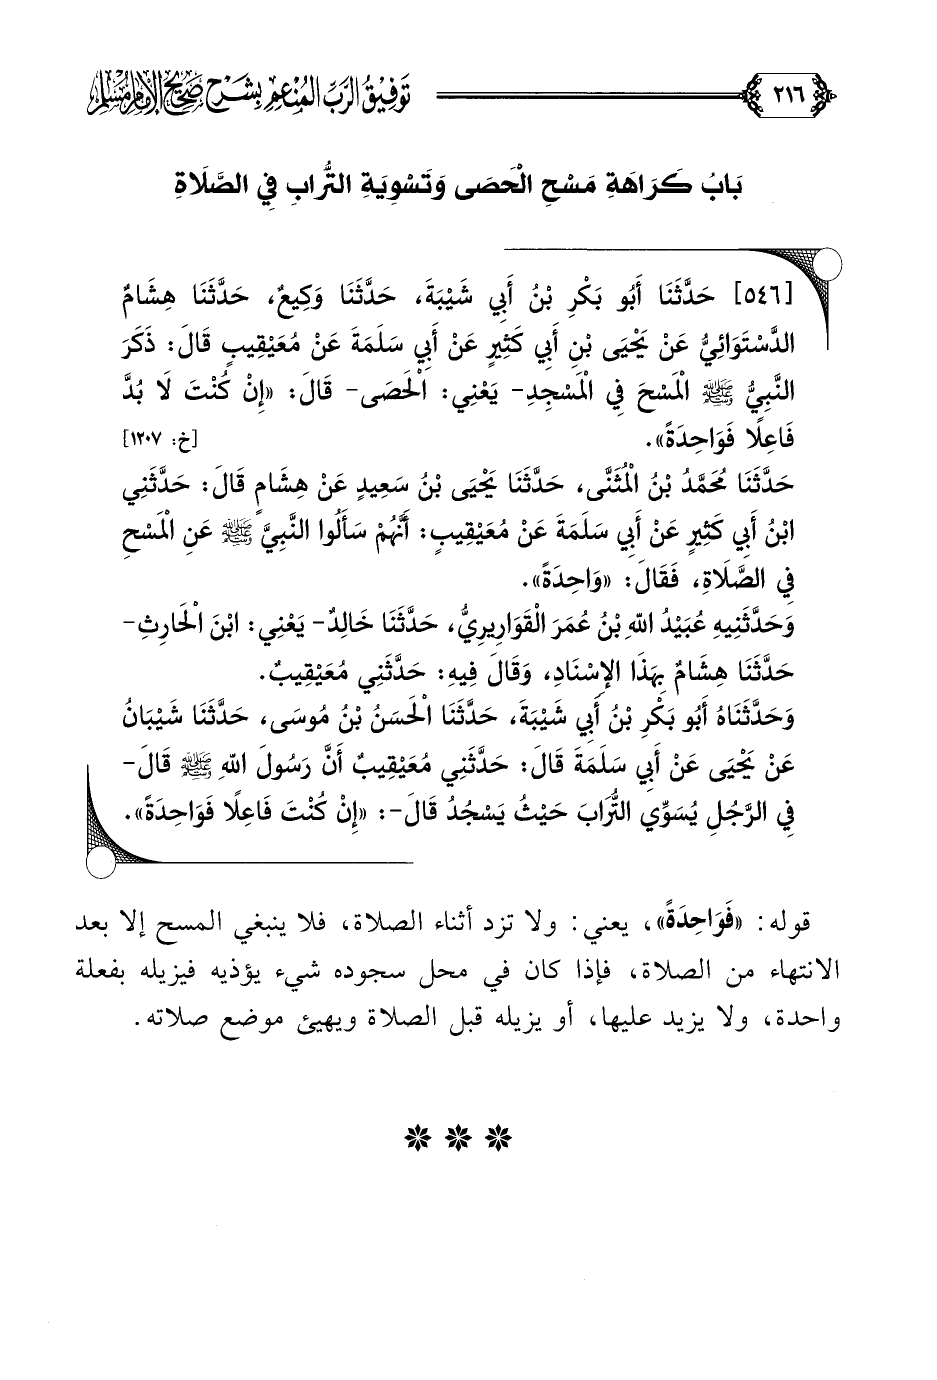 ٢١٦
توفيق الرب المنعم بشرح صحيح الإمام مسلم
بَابُ كَرَاهَةِ مَسْحِ الْحَصَى وَتَسْوِيَةِ التُّرَابِ فِي الصَّلَاةِ
[٥٤٦] حَدَّثَنَا أَبُو بَكْرِ بْنُ أَبِي شَيْبَةَ، حَدَّثَنَا وَكِيعٌ، حَدَّثَنَا هِشَامٌ
الدَّسْتَوَائِيُّ عَنْ يَحْيَى بْنِ أَبِي كَثِيرٍ عَنْ أَبِي سَلَمَةَ عَنْ مُعَيْقِيبٍ قَالَ: ذَكَرَ
النَّبِيُّ ﷺ الْمَسْحَ فِي الْمَسْجِدِ- يَعْنِي: الْحَصَى- قَالَ: «إِنْ كُنْتَ لَا بُدَّ
فَاعِلًا فَوَاحِدَةً».
[خ: ١٢٠٧]
حَدَّثَنَا مُحَمَّدُ بْنُ الْمُثَنَّى، حَدَّثَنَا يَحْيَى بْنُ سَعِيدٍ عَنْ هِشَامٍ قَالَ: حَدَّثَنِي
ابْنُ أَبِي كَثِيرٍ عَنْ أَبِي سَلَمَةَ عَنْ مُعَيْقِيبٍ: أَنَّهُمْ سَأَلُوا النَّبِيَّ ﷺ عَنِ الْمَسْحِ
فِي الصَّلَاةِ، فَقَالَ: «وَاحِدَةً».
وَحَدَّثَنِيهِ عُبَيْدُ اللهِ بْنُ عُمَرَ الْقَوَارِيرِيُّ، حَدَّثَنَا خَالِدٌ- يَعْنِي: ابْنَ الْحَارِثِ-
حَدَّثَنَا هِشَامٌ بِهَذَا الإِسْنَادِ، وَقَالَ فِيهِ: حَدَّثَنِي مُعَيْقِيبٌ.
وَحَدَّثَنَاهُ أَبُو بَكْرِ بْنُ أَبِي شَيْبَةَ، حَدَّثَنَا الْحَسَنُ بْنُ مُوسَى، حَدَّثَنَا شَيْبَانُ
عَنْ يَحْيَى عَنْ أَبِي سَلَمَةَ قَالَ: حَدَّثَنِي مُعَيْقِيبٌ أَنَّ رَسُولَ اللهِ ﷺ قَالَ-
فِي الرَّجُلِ يُسَوِّي التُّرَابَ حَيْثُ يَسْجُدُ قَالَ-: «إِنْ كُنْتَ فَاعِلًا فَوَاحِدَةً».
قوله: «فَوَاحِدَةً»، يعني: ولا تزد أثناء الصلاة، فلا ينبغي المسح إلا بعد
الانتهاء من الصلاة، فإذا كان في محل سجوده شيء يؤذيه فيزيله بفعلة
واحدة، ولا يزيد عليها، أو يزيله قبل الصلاة ويهيئ موضع صلاته.